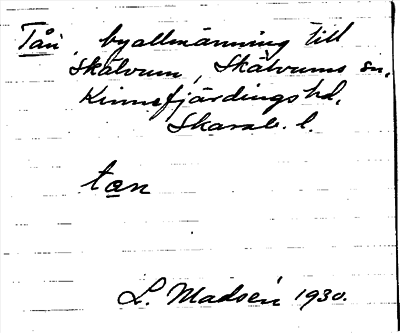 Tån byallmänning till
Skälvum, Skälvums sn,
Kinnefjärdings hd,
Skarab. l.
tan
L. Madsén 1930.